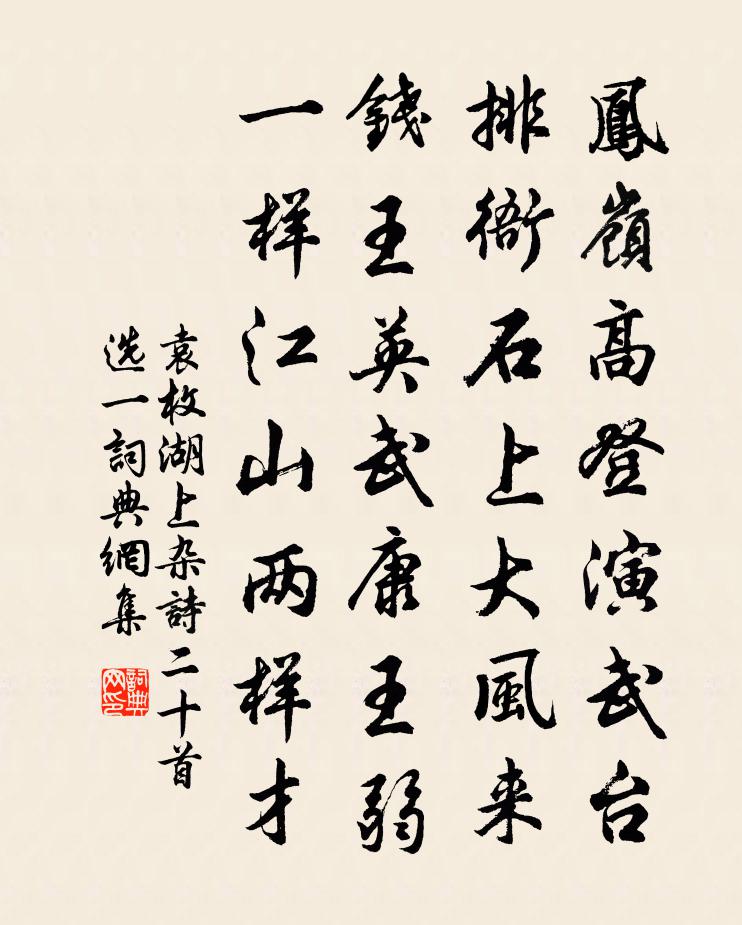 鳳嶺高登演武台
排衙石上大風来
錢王英武康王弱
一样江山两样才
袁枚湖上杂詩二十首
选一詞典網集
詞典
网印